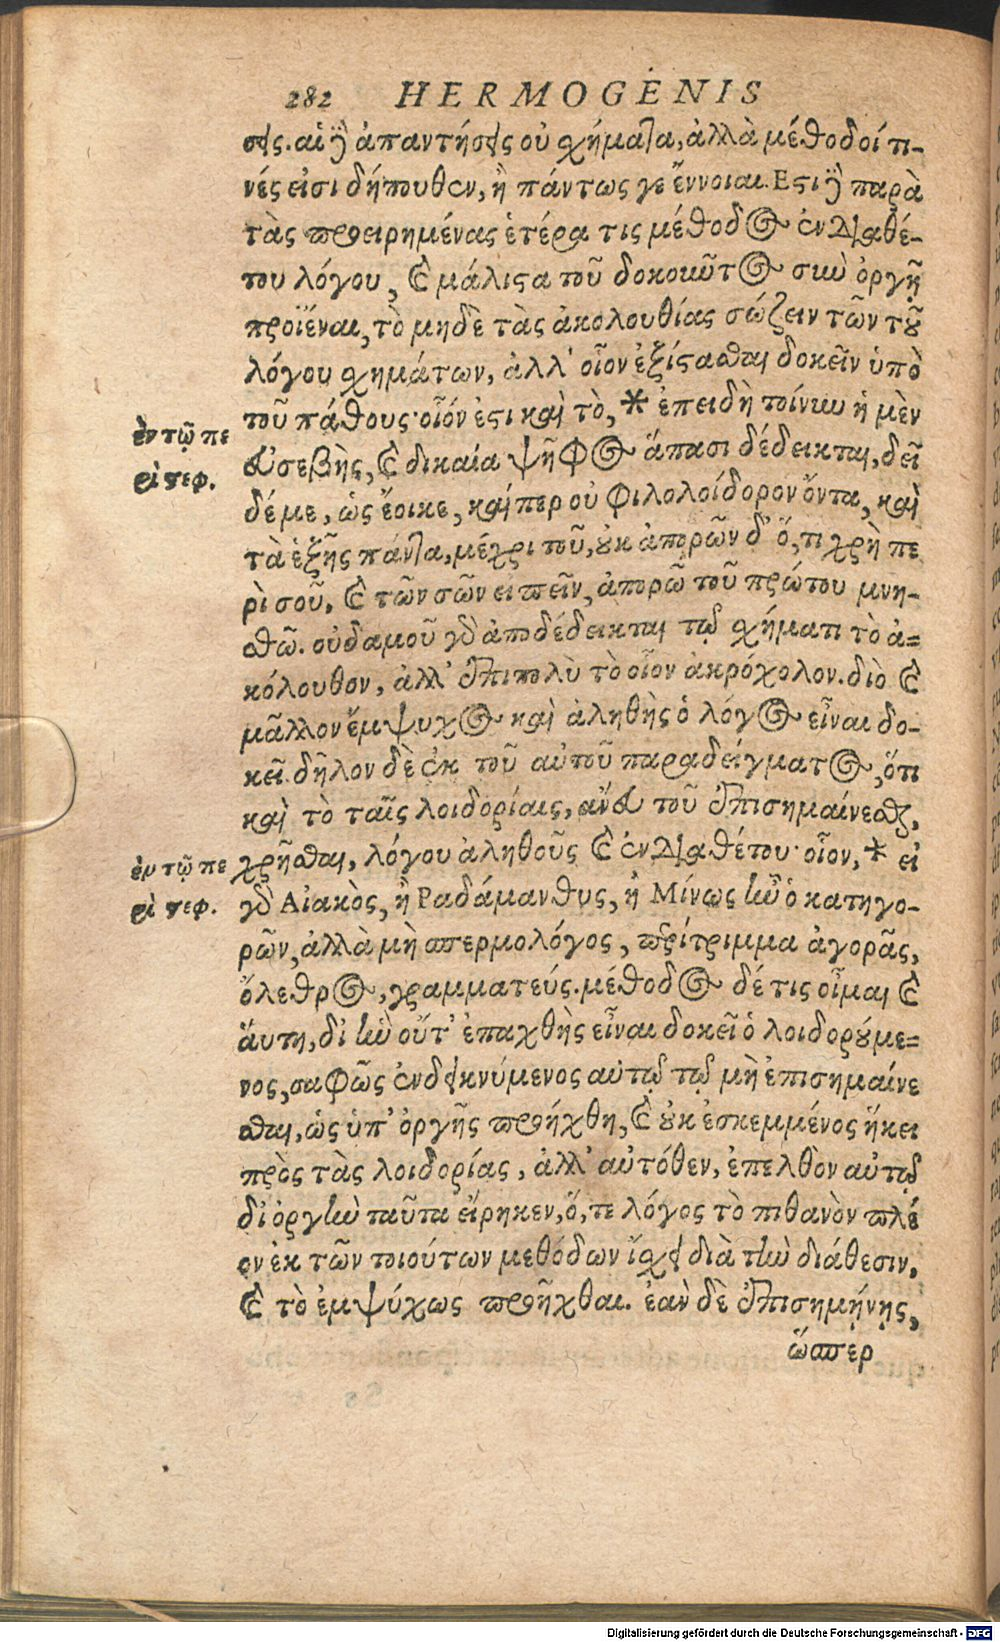 282 HERMOGENIS
σεις. αἱ δὲ ἀπαντήσεις οὐ σχήματα, ἀλλὰ μέθοδοί τι-
νές εἰσι δήπουθεν, ἢ πάντως γε ἔννοιαι. Εστι δὲ παρὰ
τὰς προειρημένας ἑτέρα τις μέθοδος ἐνδιαθέ-
του λόγου, καὶ μάλιστα τοῦ δοκοιῦτος σιωὺ ὀργῇ
προϊέναι, τὸ μηδὲ τὰς ἀκολουθίας σώζειν τῶν τοῦ
λόγου σχημάτων, ἀλλ' οἷον ἐξίστασθαι δοκεῖν ὑπὸ
τοῦ πάθους· οἷόν ἐστι καὶ τὸ, * ἐπειδὴ τοίνυν ἡ μὲν
ἐν τῷ πε
ρὶ στεφ.
εὐσεβὴς, καὶ δικαία ψῆφος ἅπασι δέδεικται, δεῖ
δέ με, ὡς ἔοικε, καίπερ οὐ φιλολοίδορον ὄντα, καὶ
τὰ ἑξῆς πάντα, μέχρι τοῦ, οὐκ ἀπορῶν δ' ὅ, τι χρὴ πε
ρὶ σοῦ, καὶ τῶν σῶν εἰπεῖν, ἀπορῶ τοῦ πρώτου μνη-
σθῶ. οὐδαμοῦ γὰρ ἀποδέδεικται τῷ σχήματι τὸ ἀ=
κόλουθον, ἀλλ' ἐπιπολὺ τὸ οἷον ἀκρόχολον. διὸ καὶ
μᾶλλον ἔμψυχος καὶ ἀληθὴς ὁ λόγος εἶναι δο-
κεῖ. δῆλον δὲ ἐκ τοῦ αὐτοῦ παραδείγματος, ὅτι
καὶ τὸ ταῖς λοιδορίαις, ἄνευ τοῦ ἐπισημαίνεσθαι,
χρῆσθαι, λόγου ἀληθοῦς καὶ ἐνδιαθέτου· οἷον, * εἰ
ἐν τῷ πε
ρὶ στεφ.
γὰρ Αἰακὸς, ἢ Ραδάμανθυς, ἢ Μίνως ἦν ὁ κατηγο-
ρῶν, ἀλλὰ μὴ σπερμολόγος, περίτριμμα ἀγορᾶς,
ὄλεθρος, γραμματεύς. μέθοδος δέ τις οἶμαι καὶ
ἅυτη, δι' ἣν οὔτ' ἐπαχθὴς εἶναι δοκεῖ ὁ λοιδορούμε=
νος, σαφῶς ἐνδεικνύμενος αὐτῷ τῷ μὴ ἐπισημαίνε
σθαι, ὡς ὑπ' ὀργῆς προήχθη, καὶ οὐκ ἐσκεμμένος ἥκει
πρὸς τὰς λοιδορίας, ἀλλ' αὐτόθεν, ἐπελθὸν αὐτῷ
δι' ὀργὴν ταῦτα εἴρηκεν, ὅ, τε λόγος τὸ πιθανὸν πλέ
ον ἐκ τῶν τοιούτων μεθόδων ἴσχει διὰ τὴν διάθεσιν,
καὶ τὸ ἐμψύχως προῆχθαι. ἐὰν δὲ ἐπισημήνῃς,
ὥσπερ
Digitalisierung gefördert durch die Deutsche Forschungsgemeinschaft - DFG